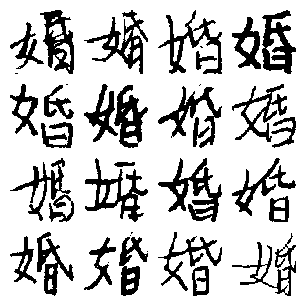 婚婚婚婚
婚婚婚婚
婚婚婚婚
婚婚婚婚